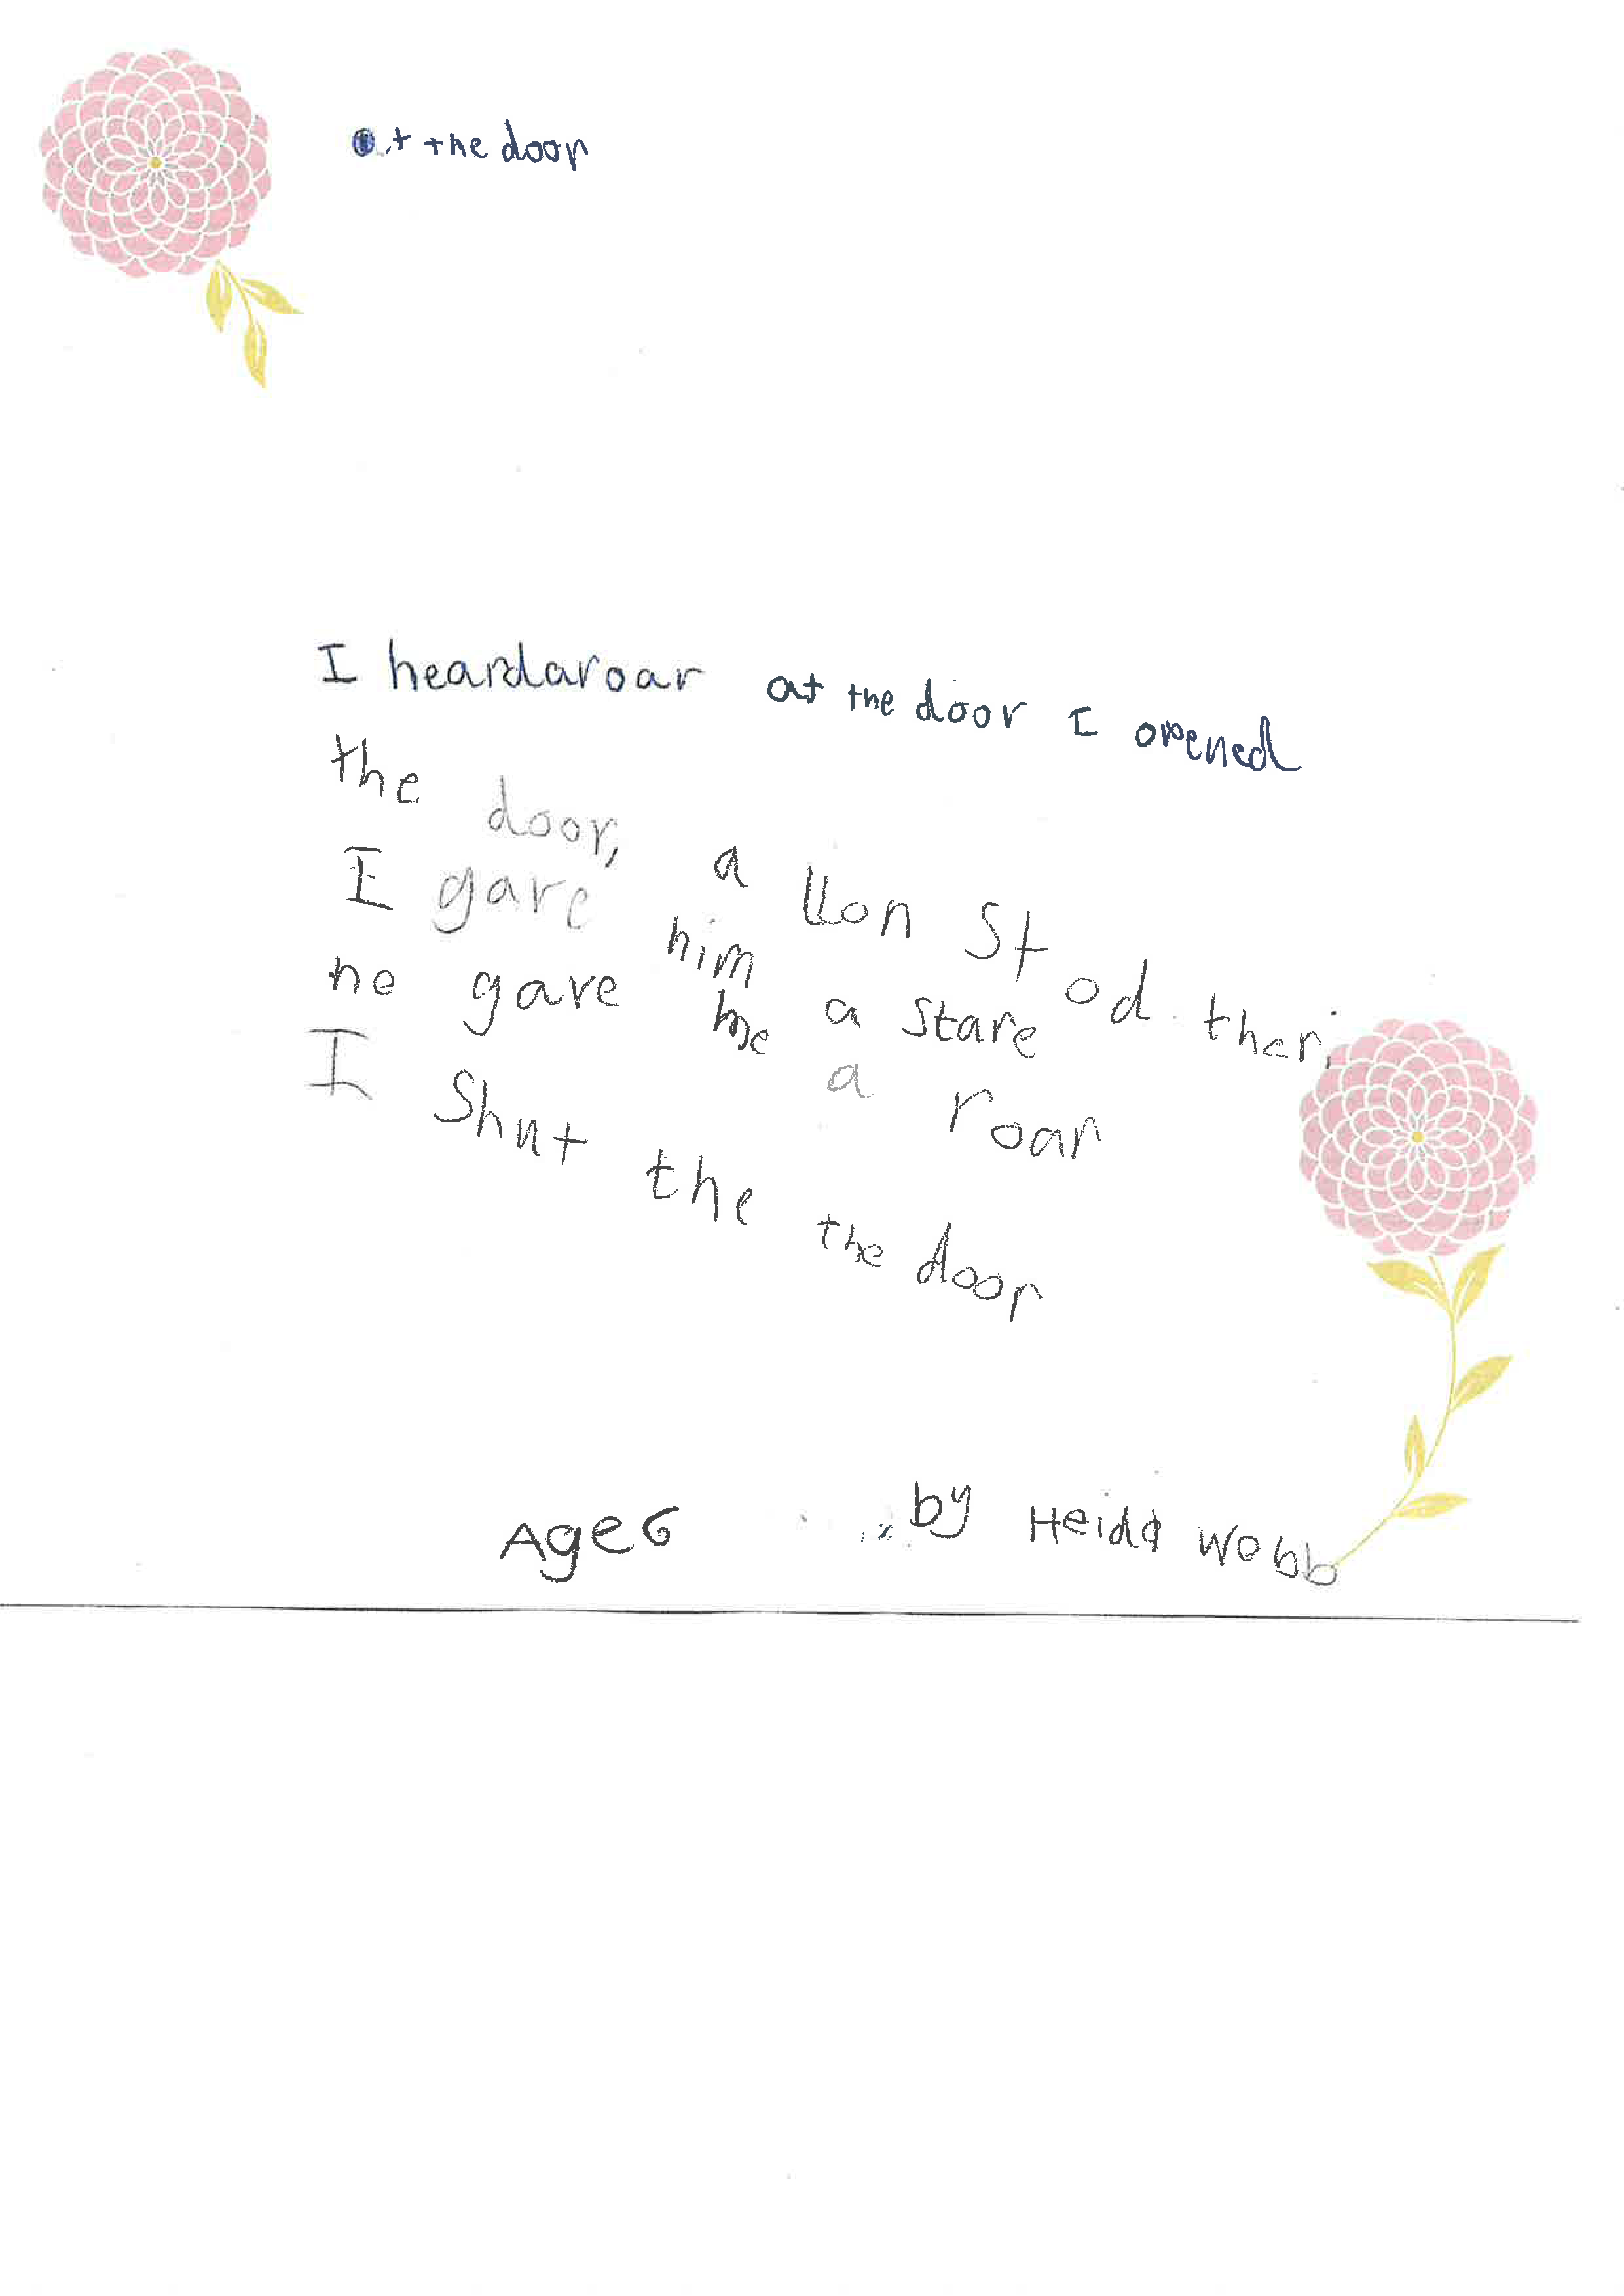 at the door
I heard a roar at the door I opened
the door, a lion stod ther,
I gave him a stare
he gave me a roar
I Shut the the door
Age 6 by Heidi Webb